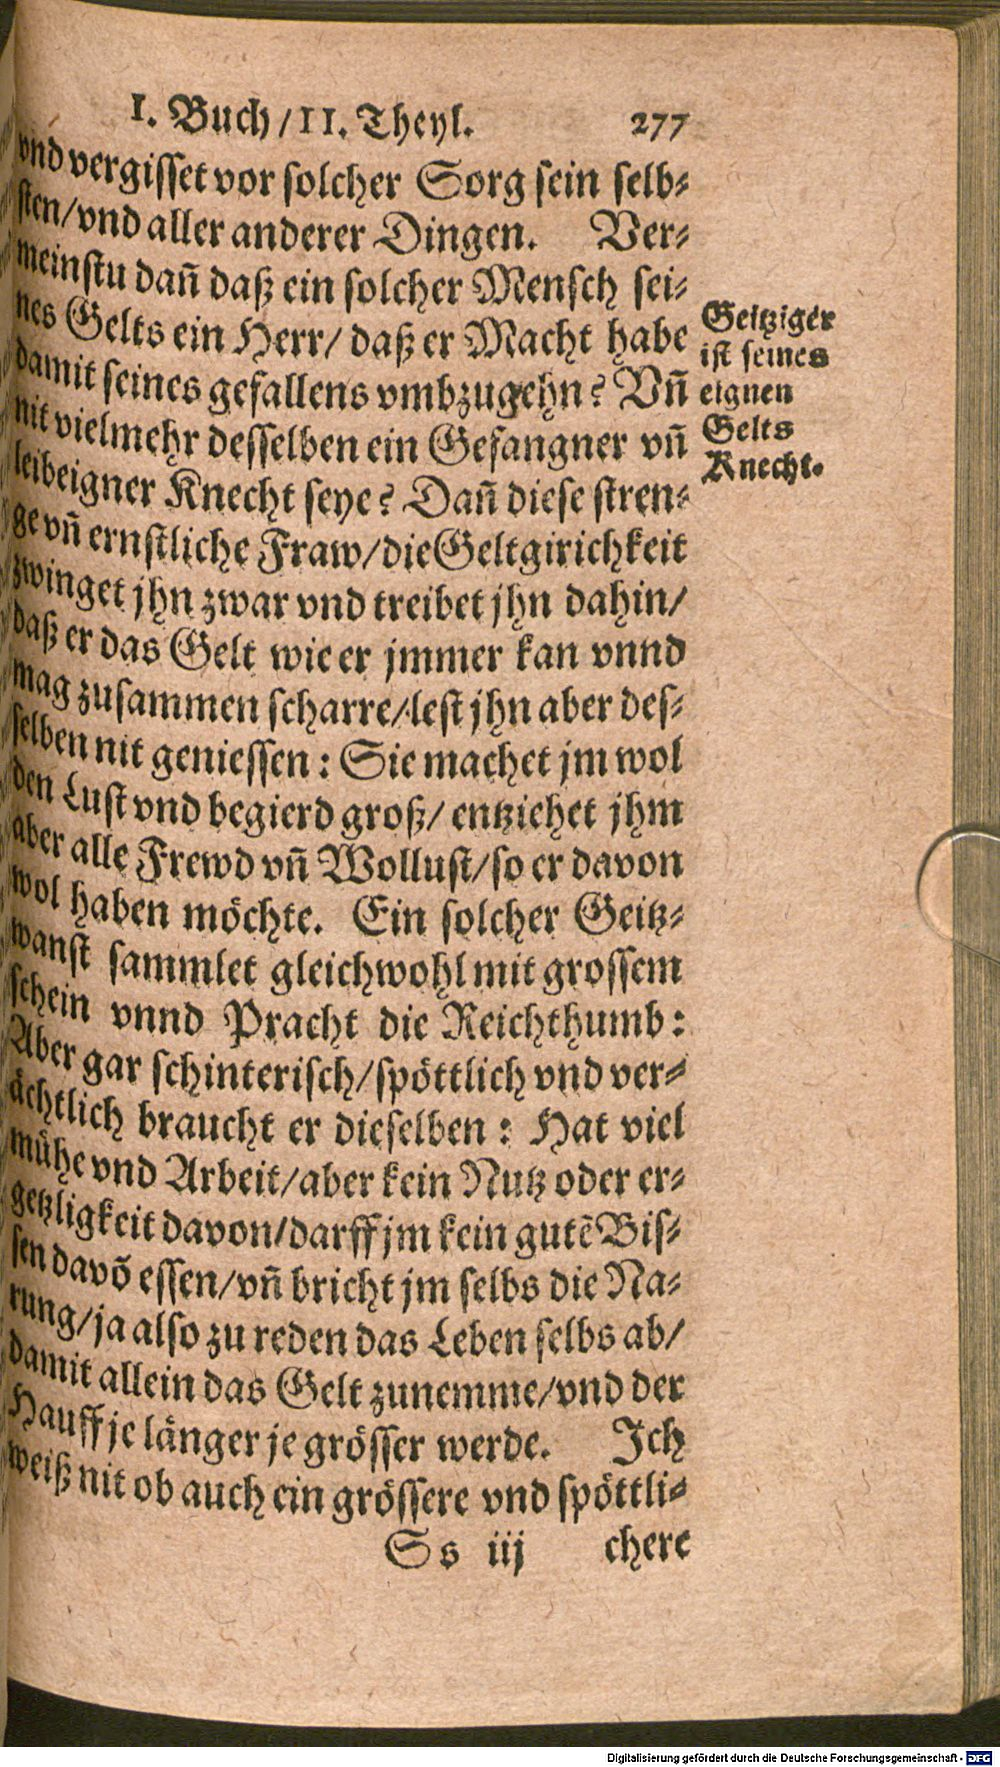 I. Buch/II. Theyl. 277
vnd vergisset vor solcher Sorg sein selb⸗
sten/vnd aller anderer Dingen. Ver⸗
meinstu dañ daß ein solcher Mensch sei⸗
nes Gelts ein Herr/ daß er Macht habe
damit seines gefallens vmbzugehn? Vñ
nit vielmehr desselben ein Gefangner vñ
leibeigner Knecht seye? Dañ diese stren⸗
ge vñ ernstliche Fraw/die Geltgirichkeit
zwinget jhn zwar vnd treibet jhn dahin/
daß er das Gelt wie er jmmer kan vnnd
mag zusammen scharre/lest jhn aber des⸗
selben nit geniessen: Sie machet jm wol
den Lust vnd begierd groß/ entziehet jhm
aber alle Frewd vñ Wollust/so er davon
wol haben möchte. Ein solcher Geitz⸗
wanst sammlet gleichwohl mit grossem
schein vnnd Pracht die Reichthumb:
Aber gar schinterisch/spöttlich vnd ver⸗
ächtlich braucht er dieselben: Hat viel
mühe vnd Arbeit/aber kein Nutz oder er⸗
getzligkeit davon/darff jm kein gutẽ Bis⸗
sen davõ essen/vñ bricht jm selbs die Na⸗
rung/ja also zu reden das Leben selbs ab/
damit allein das Gelt zunemme/vnd der
Hauff je länger je grösser werde. Ich
weiß nit ob auch ein grössere vnd spöttli⸗
Ss iij chere
Geitziger
ist seines
eignen
Gelts
Knecht.
Digitalisierung gefördert durch die Deutsche Forschungsgemeinschaft - DFG